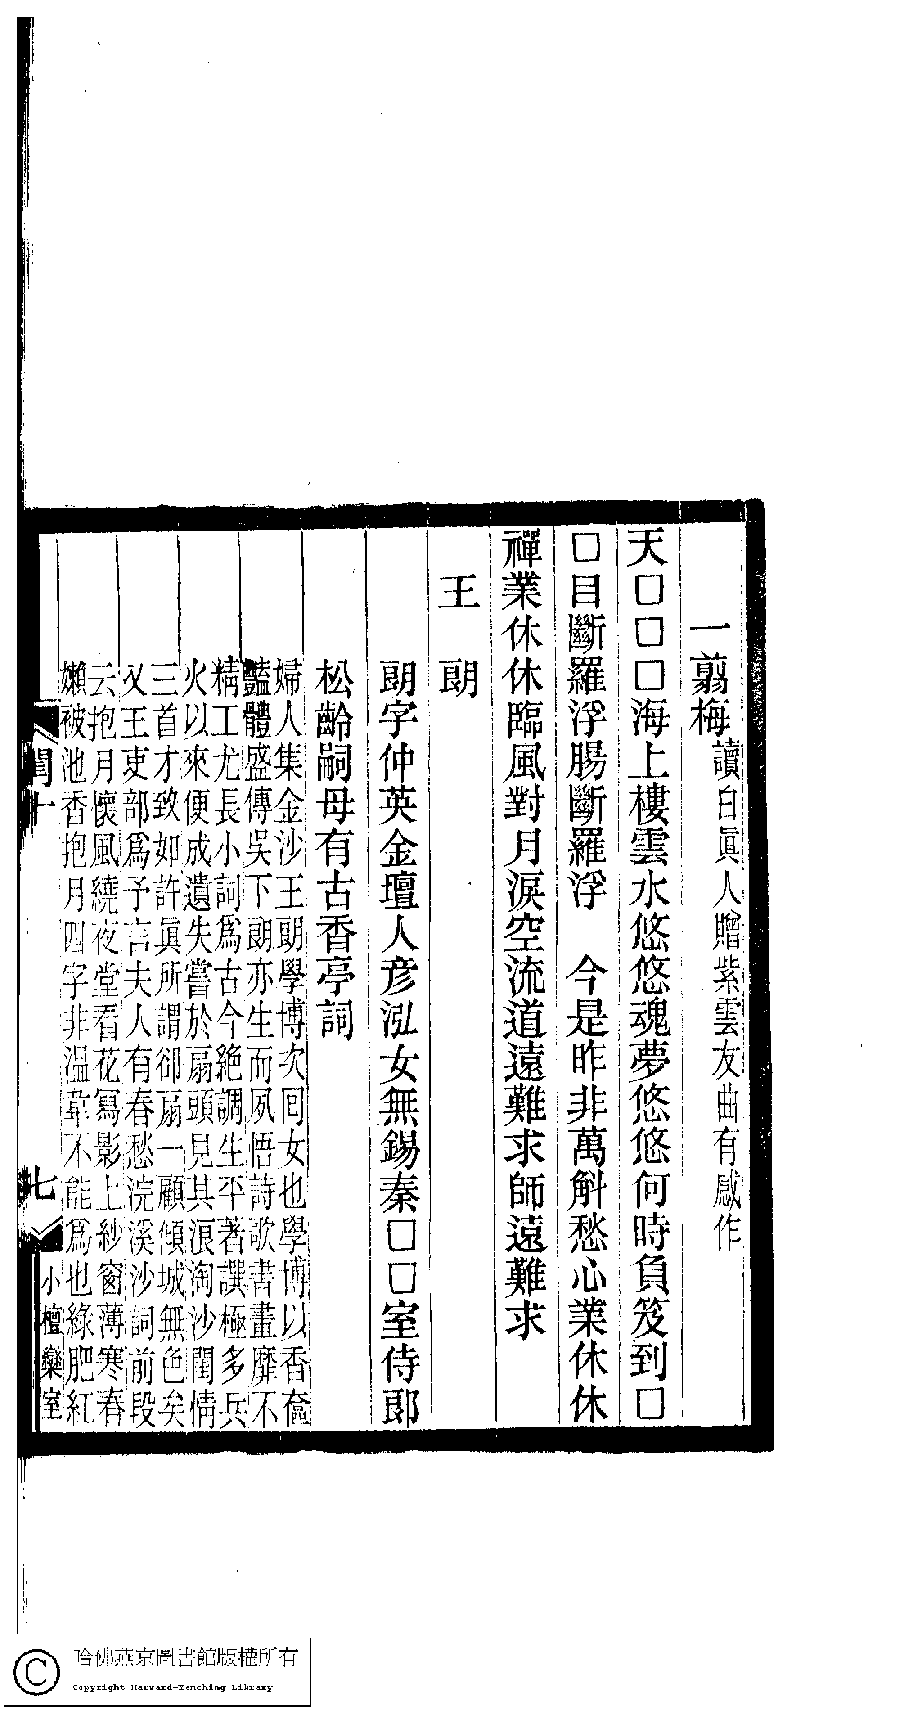 一翦梅讀白眞人贈紫雲友曲有感作
天□□□海上樓雲水悠悠魂夢悠悠何時負笈到□
□目斷羅浮腸斷羅浮　今是昨非萬斛愁心業休休
禪業休休臨風對月淚空流道遠難求師遠難求
王　朗
朗字仲英金壇人彥泓女無錫秦□□室侍郎
松齡嗣母有古香亭詞
婦人集金沙王朗學博次回女也學博以香奩
豔體盛傳吳下朗亦生而夙悟詩歌書畫靡不
精工尤長小詞爲古今絶調生平著譔極多兵
火以來便成遺失嘗於扇頭見其浪淘沙閨情
三首才致如許眞所謂卻扇一顧傾城無色矣
又王吏部爲予言夫人有春愁浣溪沙詞前段
云抱月懷風繞夜堂看花寫影上紗窗薄寒春
嬾被池香抱月四字非溫韋不能爲也綠肥紅
閨十
七
小檀欒室
哈佛燕京圖書館版權所有
Copyright Harvard-Yenching Library